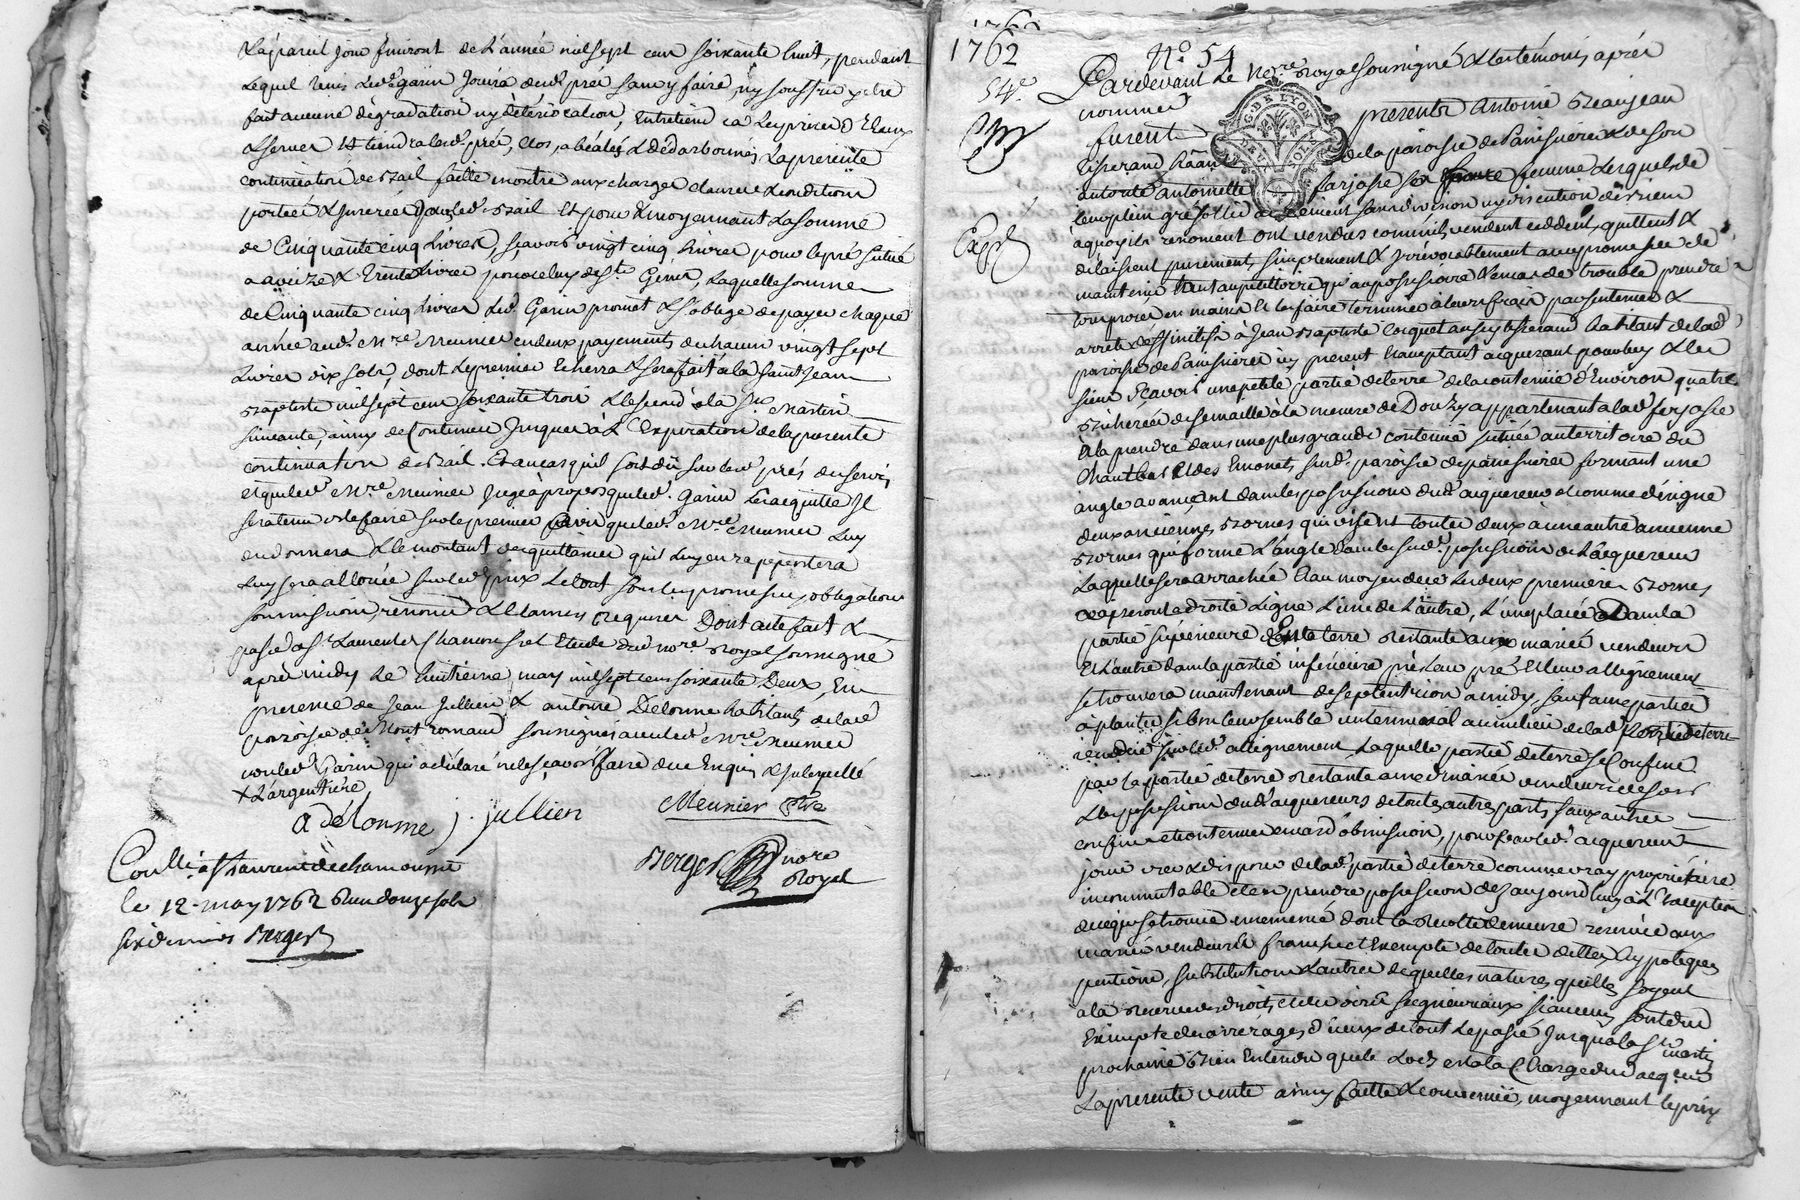 Lapareil jour finiront de L'année mil sept cen soixante huit, pendant
Lequel tems Led. garin Jouira dud. pré sans y faire, ny souffrir y etre
fait aucune dégradation ny déterioration, Entretiendra Les prises d'Eaux
& serves & tiendra led. pré, clos, La présente
continuation de Bail faitte outre aux charges clauses & conditions
portées & Inserées aud. Bail Et pour & moyennant La somme
de Cinquante cinq Livres, sçavoir vingt cinq Livres pour le pré situé
a aveize & Trente Livres pour celuy de St. Genis, Laquelle somme
de Cinquante cinq Livres Led. Garin promet & s'oblige de payer chaque
année aud. Mre. Meunier en deux payements de chacun vingt sept
Livres dix sols, dont Le premier Echerra & sera fait à la Saint Jean
Baptiste mil sept cen soixante trois & le second à la St. Martin
suivante, ainsy de Continuer Jusques à L'Expiration de la presente
continuation de Bail. Et au cas qu'il soit dû sur led. prés des servis
et que led. Mre. Meunier Juge à propos que led. Garin Les acquitte Il
sera tenu de le faire sur le premier avis que led. Mre. Meunier Luy
en donnera & le montant des quittances qu'il Luy en raportera
Luy sera allouée sur led. prix Le tout sous les promesses, obligations
soumissions, renon. & Clauses requises Dont acte fait &
passé a St. Laurent de Chamousset Etude du no.re Royal soussigné
après midy Le huitieme may mil sept cen soixante Deux, En
presence de Jean Jullien & antoine Delorme habitants de lad.
paroisse de Mont romand soussignés avec led. Mre. Meunier
non led. Garin qui a déclaré ne le sçavoir faire de ce Enquis & Interpellé
+ L'argentiere
A délorme j. jullien Meunier Ptre
Berger no.re Royal
Coullé a St Laurent de chamousset
le 12 may 1762 Reçu douze sols
six deniers Berger
1762
1762
No. 54
54e.
Expd.
Pardevant Le No.re Royal soussigné & les témoins après
nommés
furent presents Antoine Beaujean
tisserand de la paroisse de Panissieres & de son
autorité Antoinette farjasse sa femme Lesquels de
leur plein gré solidairement sans division ny discution
à quoy ils renoncent ont vendus comme ils vendent ceddent, quittent &
délaissent purement, simplement & Irrévocablement avec promesse de
maintenir tant au pétitoire qu'au possessoire & en cas de trouble prendre
tous procès en mains & les faire terminer à leurs frais par sentences &
arrets deffinitifs à Jean Baptiste Coquet aussy tisserand habitant de lad.
paroisse de Panissieres icy present & acceptant acquereur pour luy & les
siens Sçavoir une petite partie de terre de la contenue d'Environ quatre
Bicherées de semaille à la mesure de Donzy appartenant à lad. farjasse
à la prendre dans une plus grande contenue située au territoire du
Chautbas et des Emonets sur d. paroisse de panissieres formant une
angle avançant dans les possessions dud. acquereur
deux anciennes Bornes qui visent toutes deux à une autre ancienne
Bornes qui forme L'angle dans les sud. possessions de L'acquereur
Laquelle sera arrachée & au moyen de ce Les deux premières Bornes
viseront à droite Ligne L'une de L'autre, L'une placée Dans la
partie supérieure de la terre restante aux mariés vendeurs
Et L'autre dans la partie inférieure près Leur pré Et leur allignement
se trouvera maintenant de septentrion à midy, sauf aux parties
à planter si bon leur semble un terme au milieu de lad. partie de terre
vendue sur led. allignement, Laquelle partie de terre se Confine
par la partie de terre restante aux mariés vendeurs de soir
& les possessions dud. acquereur de toutes autres parts sauf autres
confins et contenues en cas d'obmission, pour par led. acquereur
jouir user & disposer de lad. partie de terre comme vray propriétaire
incommutable et en prendre possession dès aujourd'huy à L'Exception
de ce qui se trouve ensemencé dont la récolte demeure réservée aux
mariés vendeurs franche et Exempte de toutes dettes hypoteques
pentions, substitutions & autres de quelles natures qu'elles soyent
à la réserve des droits et devoirs seigneuriaux
Exempte des arrérages d'iceux de tout Le passé Jusqu'à la St. martin
prochaine Bien Entendu que le Lods est à la Charge dud. acquer.
La presente vente ainsy faitte & convenüe, moyennant le prix
G. DE LYON
DEUX SOLS